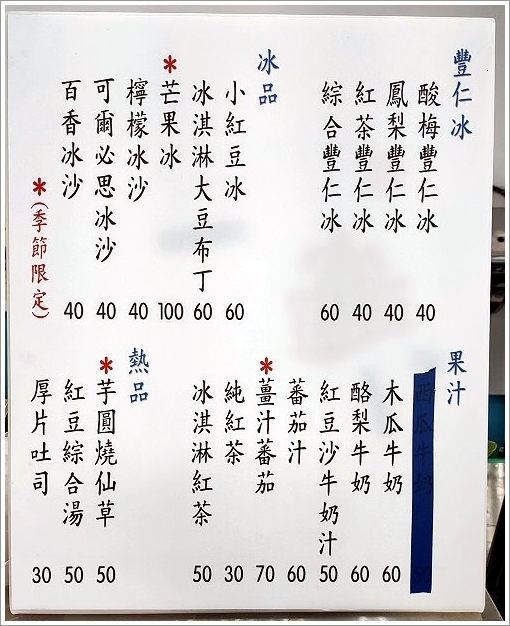 豐仁冰
酸梅豐仁冰 40
鳳梨豐仁冰 40
紅茶豐仁冰 40
綜合豐仁冰 60
冰品
小紅豆冰 60
冰淇淋大豆布丁 60
*芒果冰 100
檸檬冰沙 40
可爾必思冰沙 40
百香冰沙 40
*(季節限定)
果汁
西瓜牛奶
木瓜牛奶 60
酪梨牛奶 60
紅豆沙牛奶汁 50
蕃茄汁 60
*薑汁蕃茄 70
純紅茶 30
冰淇淋紅茶 50
熱品
*芋圓燒仙草 50
紅豆綜合湯 50
厚片吐司 30